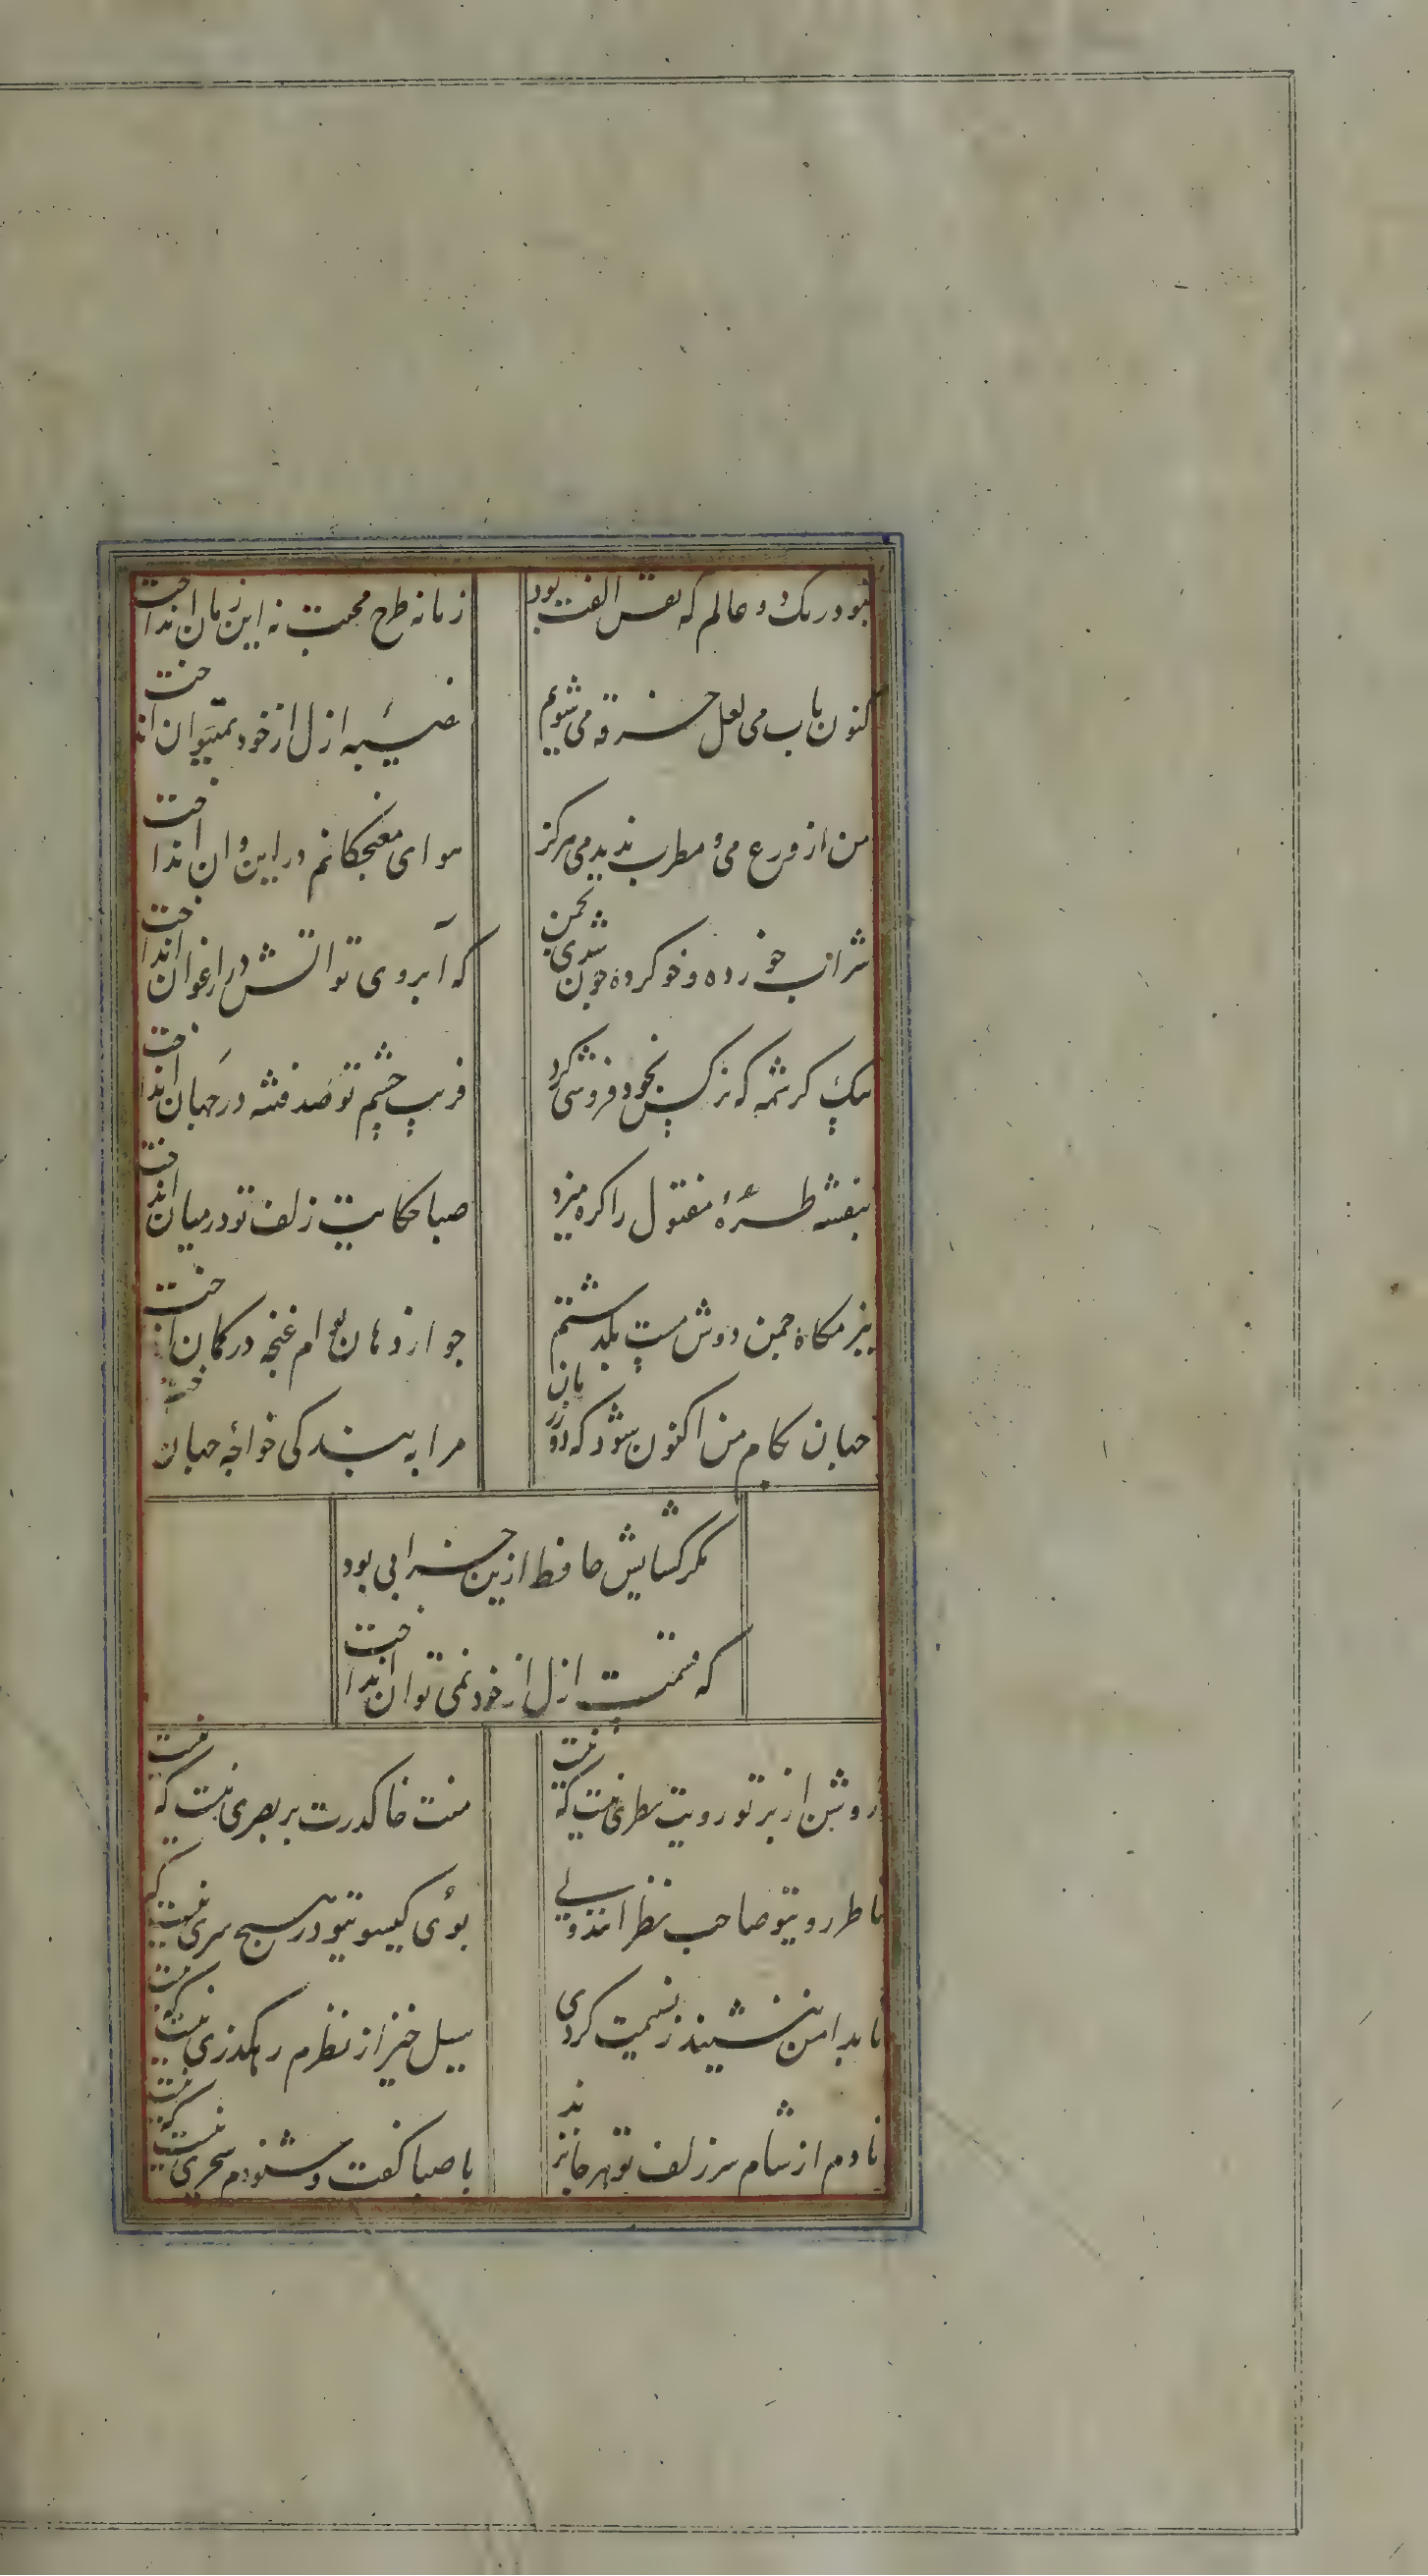 نبود رنک دو عالم که نقش الفت بود
زمانه طرح محبت نه این زمان انداخت
کنون بآب می لعل خرقه می شویم
نصیبه ازل از خود نمیتوان انداخت
من از ورع می و مطرب ندیدمی هرکز
هوای مغبچکانم در این و ان انداخت
شراب خورده و خوکرده چون شدی بچمن
که آبروی تو اتش در ارغوان انداخت
بیک کرشمه که نرکس بخود فروشی کرد
فریب چشم تو صد فتنه در جهان انداخت
بنفشه طرهٔ مفتول را کره میزد
صبا حکایت زلف تو در میان انداخت
ببزمکاه چمن دوش مست بکذشتم
چو از دهان تو ام غنچه در کمان انداخت
جهان بکام من اکنون شود که دور زمان
مرا به بندکی خواجهٔ جهان انداخت
مکر کشایش حافظ ازین خرابی بود
که قسمت ازل از خود نمی توان انداخت
روشن از پرتو رویت نظری نیست که نیست
منت خاک درت بر بصری نیست که نیست
ناظر روی تو صاحب نظرانند ولی
بوی کیسوی تو در هیچ سری نیست که نیست
تا بدامن ننشیند ز نسیمت کردی
سیل خیز از نظرم رهکذری نیست که نیست
تا دم از شام سر زلف تو هر جا نزند
با صبا کفت و شنودم سحری نیست که نیست